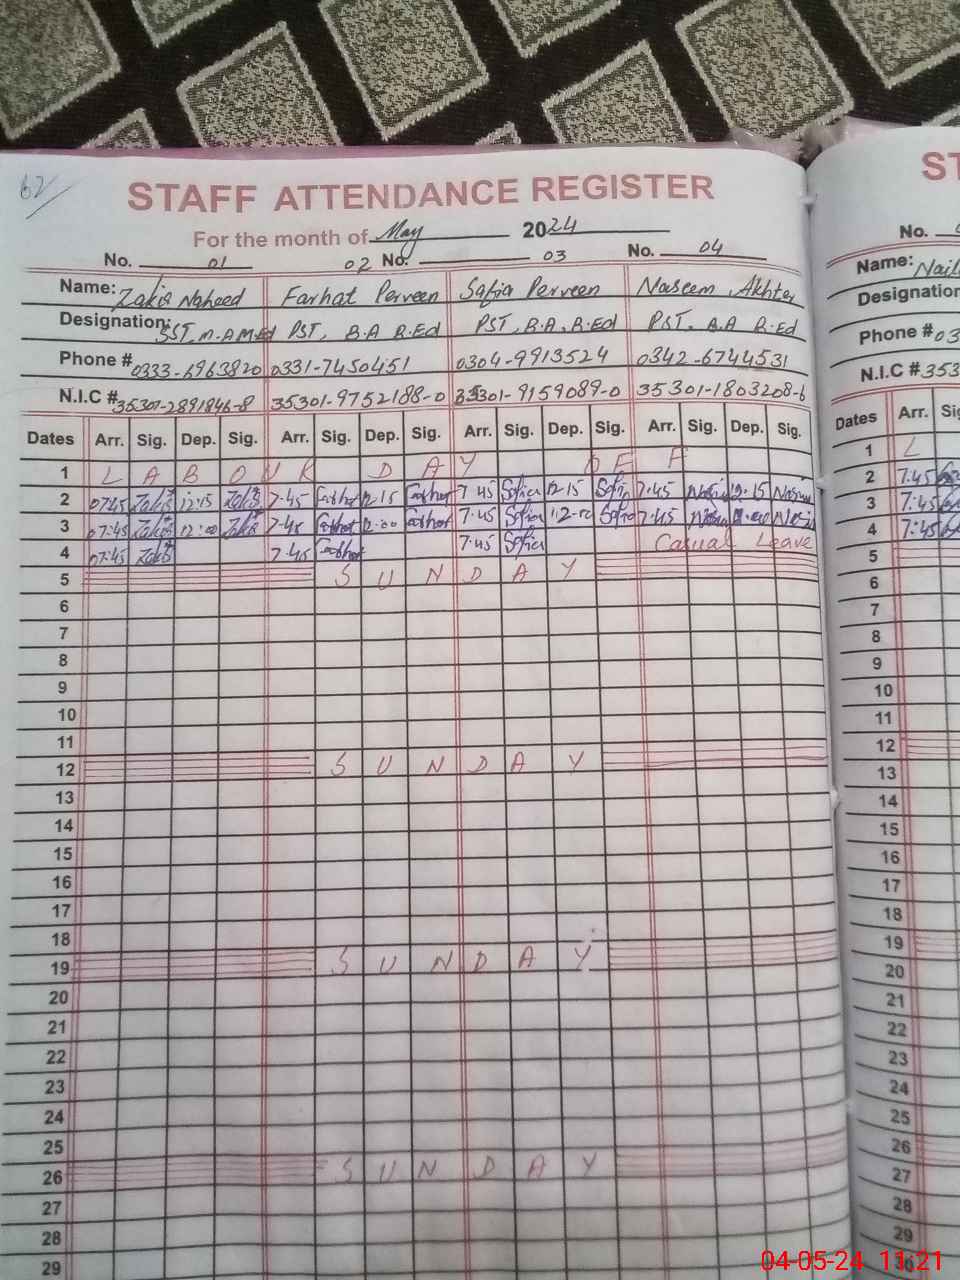 62
STAFF ATTENDANCE REGISTER
For the month of May 2024
No. 01 02 No. 03 No. 04
Name: Zakia Naheed Farhat Perveen Safia Perveen Naseem Akhter
Designation: SST, M.A M.Ed PST, B.A B.Ed PST, B.A, B.Ed PST, B.A B.Ed
Phone # 0333-6963820 0331-7450451 0304-9913524 0342-6744531
N.I.C # 35301-2891846-8 35301-9752188-0 35301-9159089-0 35301-1803208-6
Dates Arr. Sig. Dep. Sig. Arr. Sig. Dep. Sig. Arr. Sig. Dep. Sig. Arr. Sig. Dep. Sig.
1 L A B O U R D A Y O F F
2 07:45 Zakia 12:15 Zakia 7.45 Farhat 12:15 Farhat 7.45 Safia 12:15 Safia 7.45 Nasim 12:15 Nasim
3 07:45 Zakia 12:00 Zakia 7.45 Farhat 12:00 Farhat 7.45 Safia 12:00 Safia 7.45 Nasim 12:00 Nasim
4 07:45 Zakia 7.45 Farhat 7.45 Safia Casual Leave
5 S U N D A Y
6
7
8
9
10
11
12 S U N D A Y
13
14
15
16
17
18
19 S U N D A Y
20
21
22
23
24
25
26 S U N D A Y
27
28
29
ST
No.
Name: Nail
Designation
Phone # 03
N.I.C # 353
Dates Arr. Sig
1 L
2 7.45
3 7.45
4 7.45
5
6
7
8
9
10
11
12
13
14
15
16
17
18
19
20
21
22
23
24
25
26
27
28
29
30
04-05-24 11:21